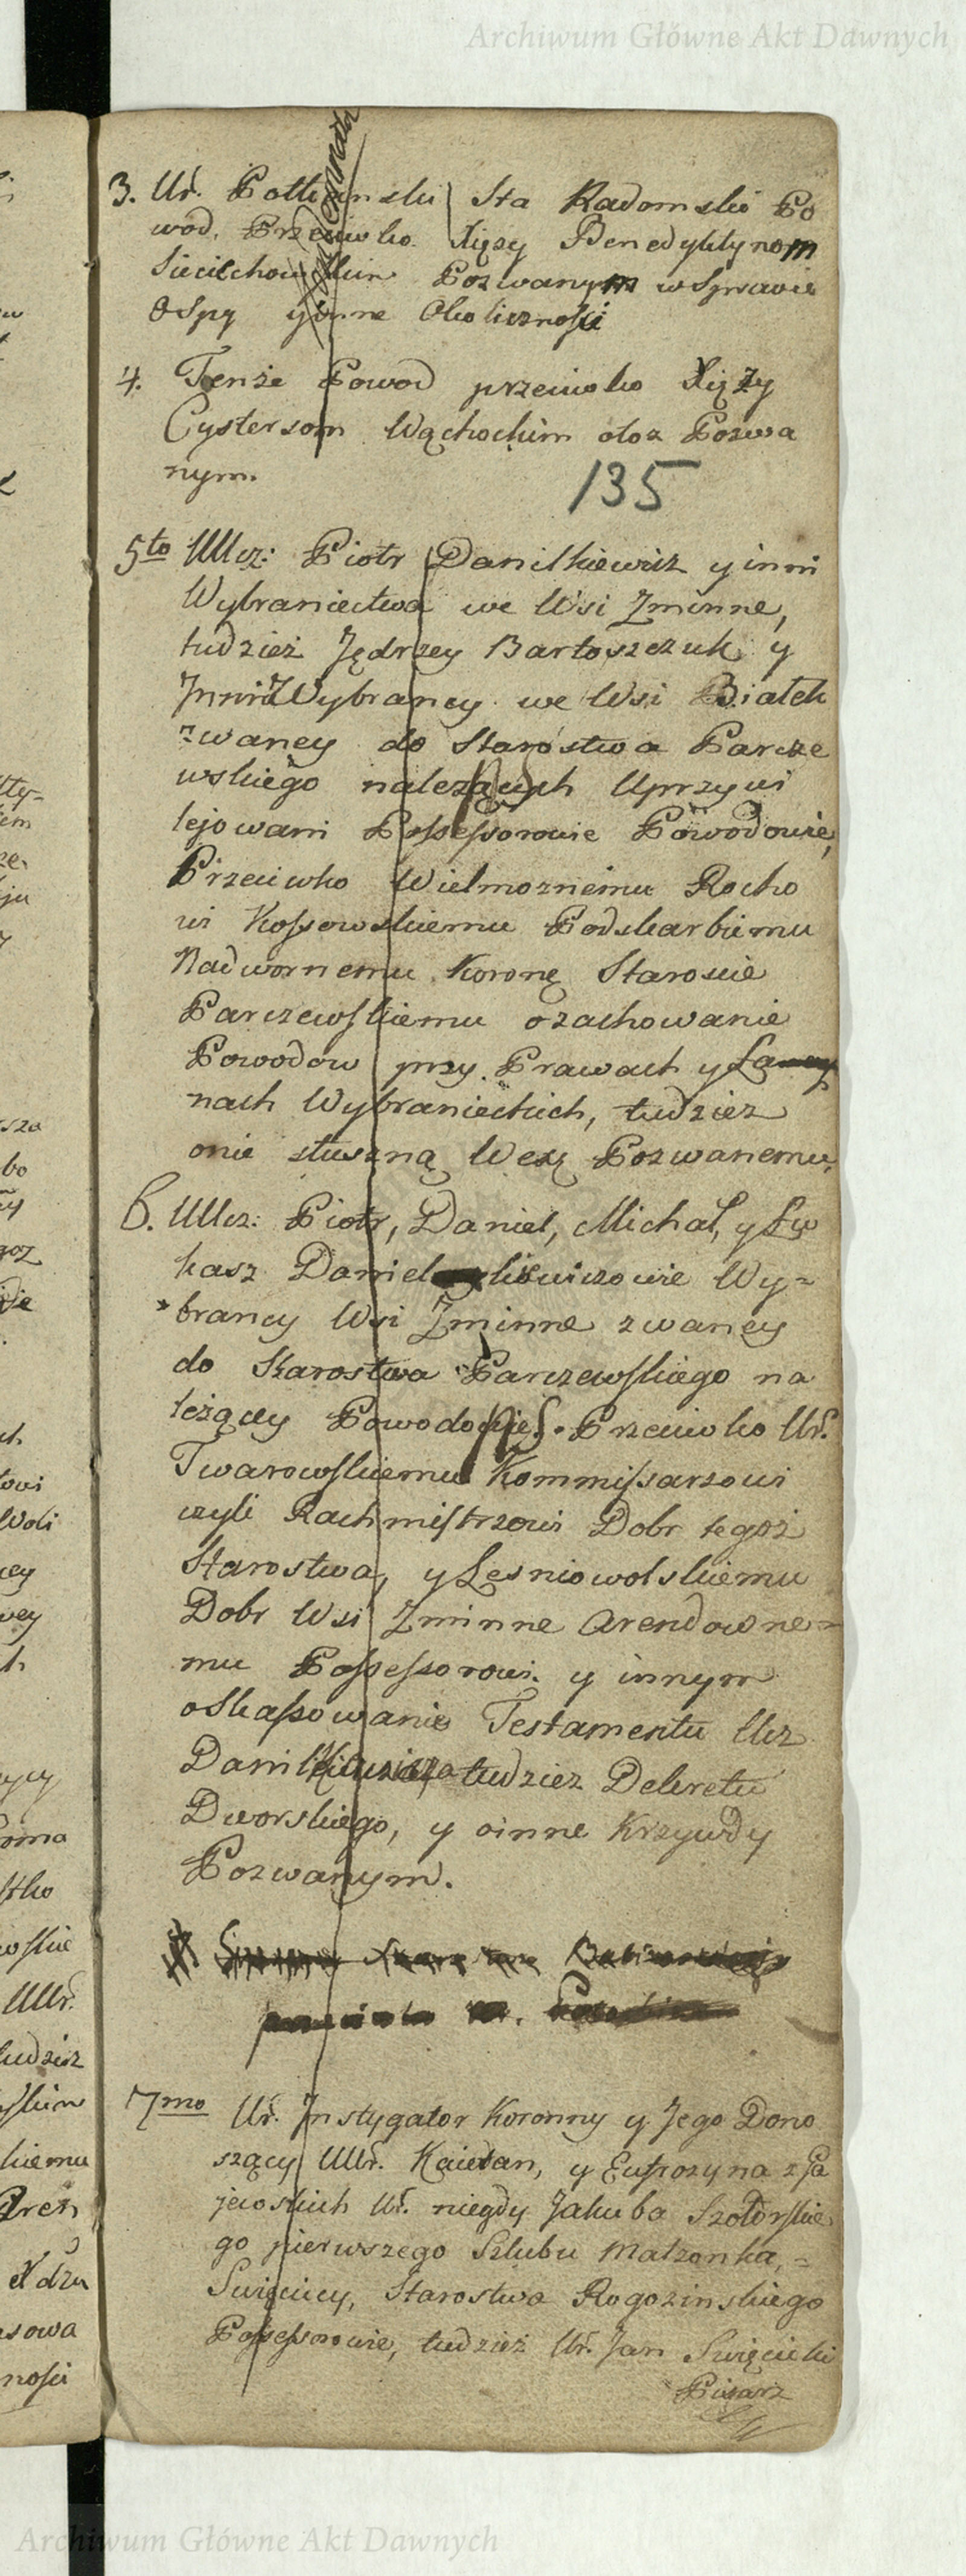 Archiwum Główne Akt Dawnych
3. Ur. Sta Radomski Po
wod. Przeciwko Xięży Benedyktynom
Sieciechowskim Pozwanym w Sprawie
Osyp y inne Okoliczności
4. Tenże Powod przeciwko Xięży
Cystersom Wąchockim otoż Pozwa
nym.
135
5to UUcz: Piotr Danilkiewicz y inni
Wybraniectwa we Wsi Zminne,
tudzież Jędrzey Bartoszczuk y
Inni Wybrancy we Wsi Białek
zwaney do Starostwa Parcze
wskiego należących Uprzywi
lejowani Possessorowie Powodowie,
Przeciwko Wielmożnemu Rocho
wi Kossowskiemu Podskarbiemu
Nadwornemu Koronę Staroscie
Parczewskiemu o zachowanie
Powodow przy Prawach y
nach Wybranieckich, tudziez
onie słuszną Pozwanemu.
6. UUcz: Piotr, Daniel, Michał, y Łu
kasz Daniel kiewiczowie Wy-
brancy Wsi Zminne zwaney
do Starostwa Parczewskiego na
leżącey Powodowie. Przeciwko Ur.
Twarowskiemu Kommissarzowi
czyli Rachmistrzowi Dobr tegoż
Starostwa, y Lesniowolskiemu
Dobr Wsi Zminne Arendowne-
mu Possessorowi y innym
o Skassowanie Testamentu Ucz
Danilkiewicza tudziez Dekretu
Dworskiego, y o inne Krzywdy
Pozwanym.
7mo Ur. Instygator Koronny y Jego Dono
szący UUr. Kaietan, y Eufrozyna z Ga
jewskich Ur. niegdy Jakuba Szołdrskie
go pierwszego Szlubu Malżonka, =
Swięciccy, Starostwa Rogozinskiego
Possessorowie, tudzież Ur. Jan Swięcicki
Pisarz
Archiwum Główne Akt Dawnych